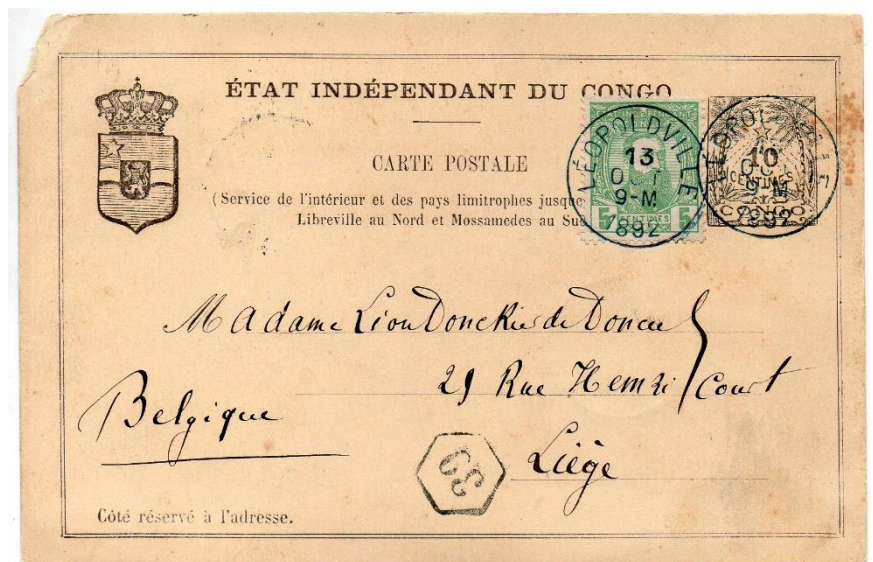 ÉTAT INDÉPENDANT DU CONGO
CARTE POSTALE
(Service de l'intérieur et des pays limitrophes jusque
Libreville au Nord et Mossamedes au Sud
LÉOPOLDVILLE
13
OCT
9-M
1892
5 CENTIMES 5
LÉOPOLDVILLE
10
CENTIMES
9-M
1892
CONGO
Madame Léon Donckier de Donceel
21 Rue Hemricourt
Belgique
Liège
39
Côté réservé à l'adresse.